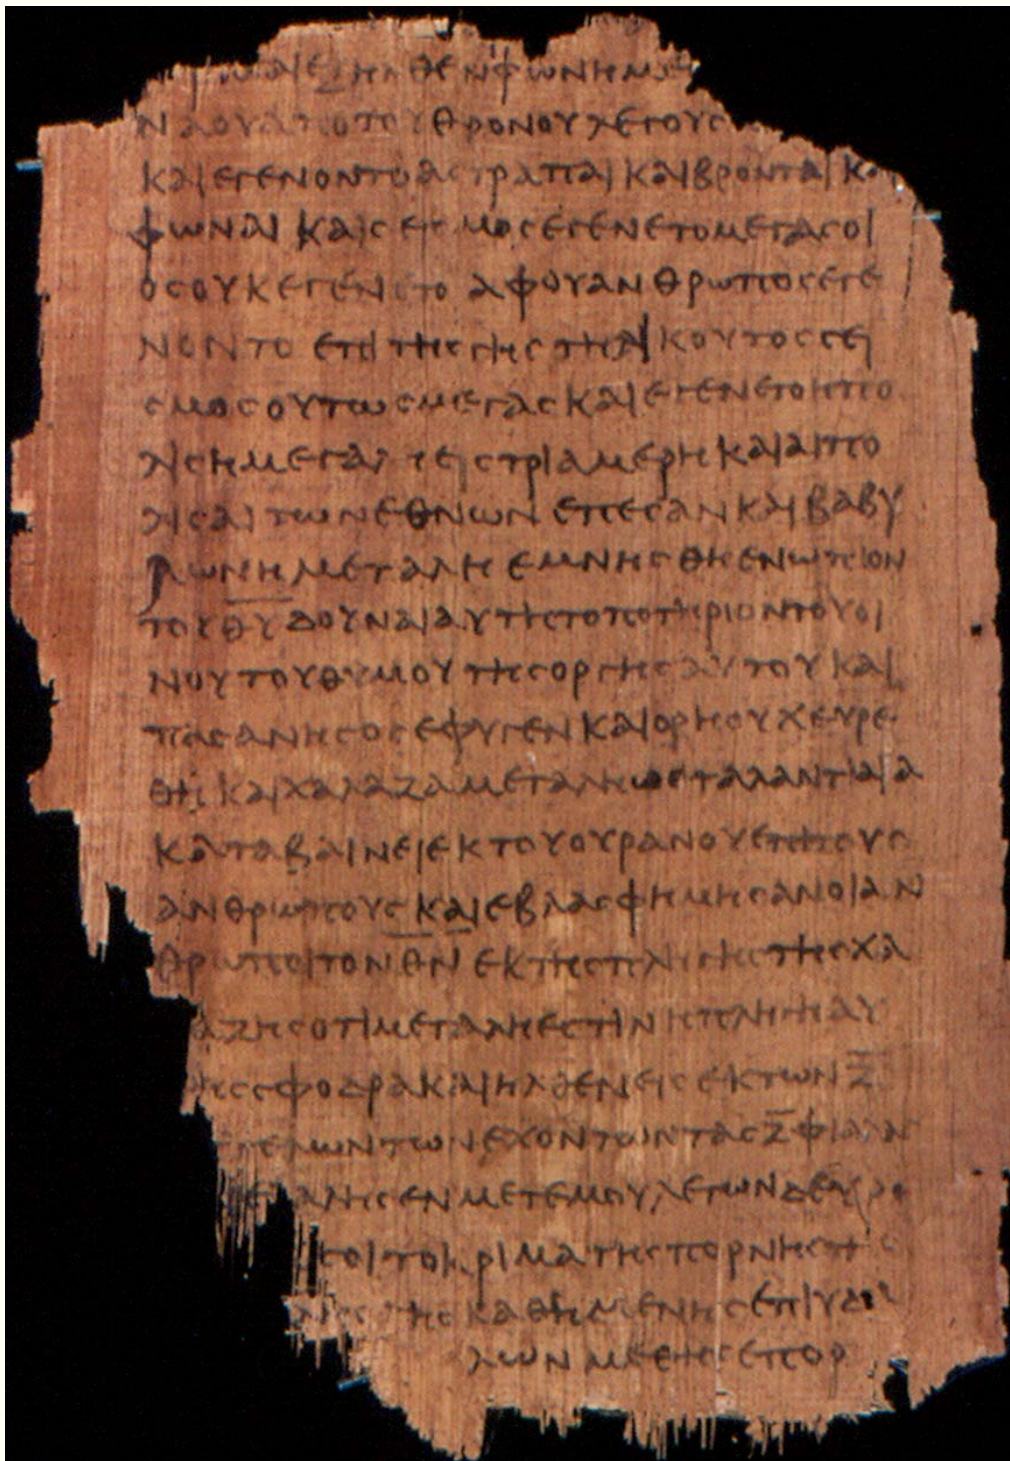 εξηλθεν φωνη με
ναου απο του θρονου λεγουσ
και εγενοντο αστραπαι και βρονται κα
φωναι και σεισμοσ εγενετο μεγασ οι
οσ ουκ εγενετο αφ ου ανθρωποσ εγε
νοντο επι τησ γησ τηλικουτοσ σει
σμοσ ουτωσ μεγασ και εγενετο η πο
λισ η μεγαλη εισ τρια μερη και αι πο
λισ αι των εθνων επεσαν και βαβυ
λων η μεγαλη εμνησθη ενωπιον
του θ̅υ̅ δουναι αυτη το ποτηριον του οι
νου του θυμου τησ οργησ αυτου και
πασα νησοσ εφυγεν και ορη ουχ ευρε
θη και χαλαζα μεγαλη ωσ ταλαντιαια
καταβαινει εκ του ουρανου επι τουσ
ανθρωπουσ και εβλασφημησαν οι αν
θρωποι τον θ̅ν̅ εκ τησ πληγησ τησ χα
αζησ οτι μεγαλη εστιν η πληγη αυ
ησ σφοδρα και ηλθεν εισ εκ των ζ̅
γελων των εχοντων τασ ζ̅ φιαλασ
ελαλησεν μετ εμου λεγων δευρο
σοι το κριμα τησ πορνησ τη
τησ καθημενησ επι υδα
λων με ησ επορ